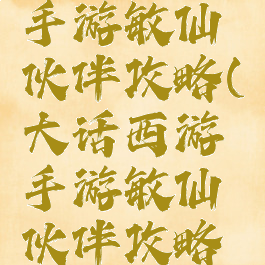 手游敏仙
伙伴攻略(
大话西游
手游敏仙
伙伴攻略